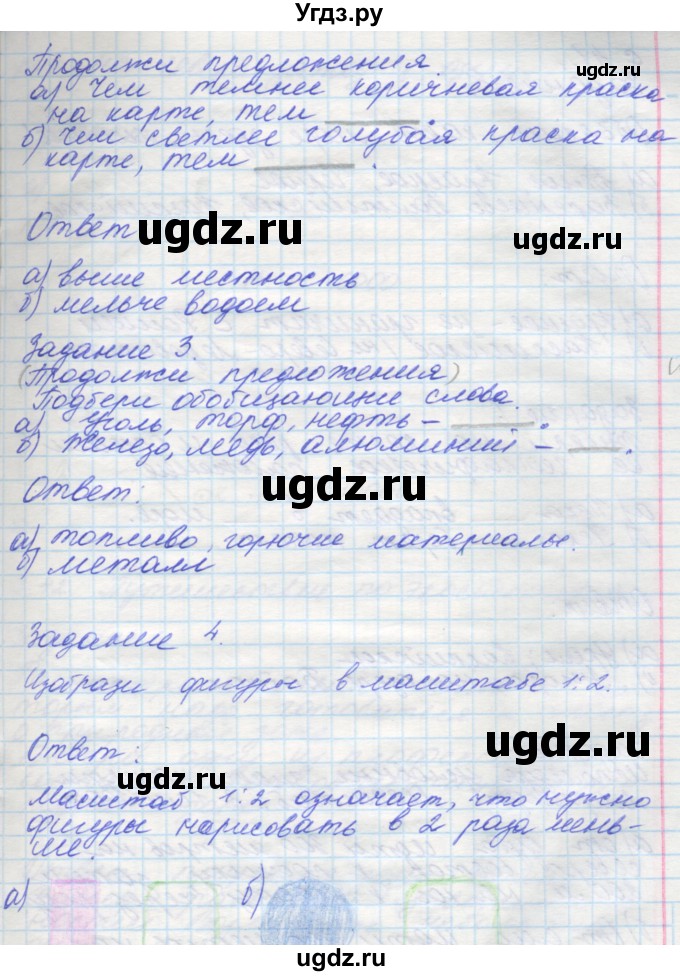 Угдз.ру
Продолжи предложения.
а) Чем темнее коричневая краска
на карте, тем ______.
б) Чем светлее голубая краска на
карте, тем ______.
Ответ
а) выше местность
б) мельче водоем
Задание 3.
(Продолжи предложения)
Подбери обобщающие слова.
а) Уголь, торф, нефть – ______.
б) Железо, медь, алюминий – ____.
Ответ:
а) топливо, горючие материалы.
б) металл
Задание 4.
Изобрази фигуры в масштабе 1:2.
Ответ:
Масштаб 1:2 означает, что нужно
фигуры нарисовать в 2 раза мень-
ше.
а) б)
ugdz.ru
ugdz.ru
ugdz.ru
ugdz.ru
ugdz.ru
ugdz.ru
ugdz.ru
ugdz.ru
ugdz.ru